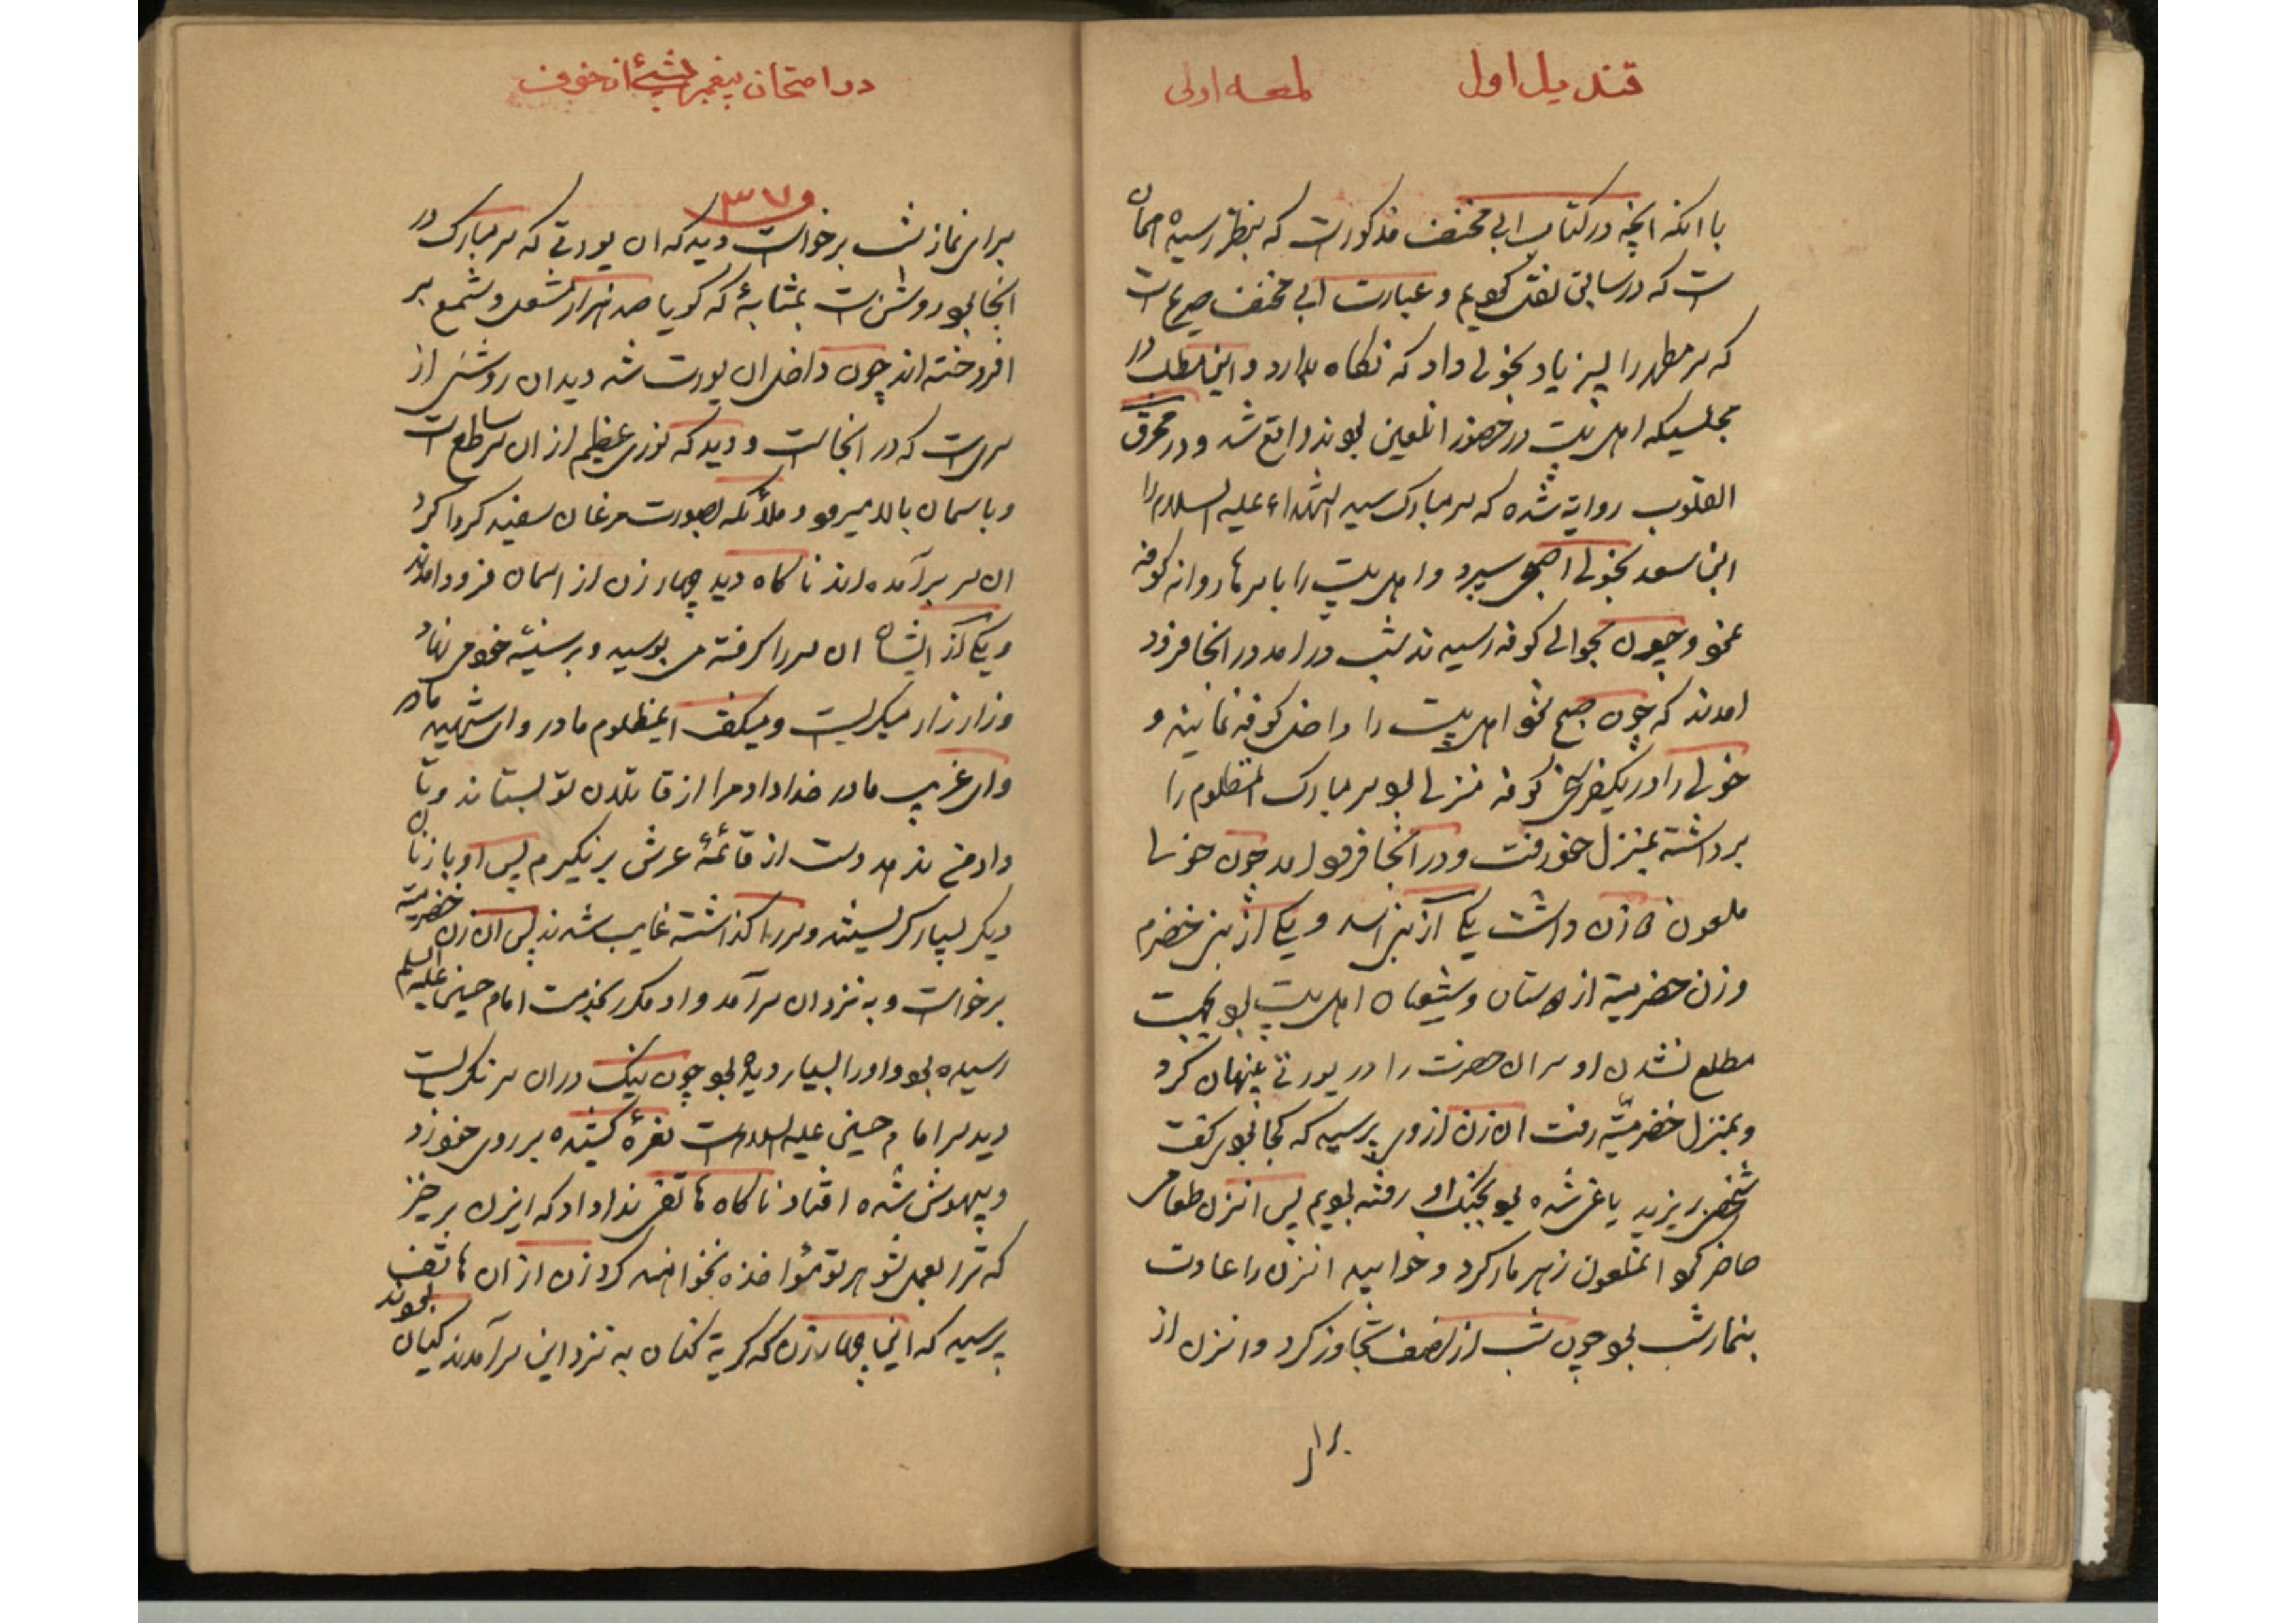 قندیل اول
لمعه اولی
با انکه انچه در کتاب ابی مخنف مذکورست که بنظر رسیده همان
ست که در سابق نقل کردیم و عبارت ابی مخنف صریح است
که سر مطهر را پسر زیاد بخولی داد که نکاه بدارد و این مطلب در
مجلسیکه اهل بیت در حضور انلعین بودند واقع شد و در محرق
القلوب روایة شده که سر مبارک سید الشهداء علیه السلام را
ابن سعد بخولی اصبحی سپرد و اهل بیت را با سرها روانه کوفه
نمود و چون بحوالی کوفه رسیدند شب درامد در انجا فرود
امدند که چون صبح شود اهل بیت را داخل کوفه نمایند و
خولی را در یکفرسخی کوفه منزلی بود سر مبارک انمظلوم را
برداشته بمنزل خود رفت و در انجا فرود امد چون خولی
ملعون دو زن داشت یکی از بنی اسد و یکی از بنی خضرم
و زن خضرمیة از دوستان و شیعیان اهل بیت بود بجهت
مطلع نشدن او سر ان حضرت را در یورتی پنهان کرد
و بمنزل خضرمیّة رفت ان زن از وی پرسید که کجا بودی کفت
شخصی بر یزید یاغی شده بود بجنک او رفته بودیم پس انزن طعامی
حاضر کرد انملعون زهر مار کرد و خوابید انزن را عادت
بنماز شب بود چون شب از نصف تجاوز کرد و انزن از
برای
در امتحان پیغمبر بشیئ از خوف
و ۳۷
برای نماز شب برخواست دید که ان یورتی که سر مبارک در
انجا بود روشن است بمثابۀ که کویا صد هزار مشعل و شمع بر
افروخته اند چون داخل ان یورت شد دید ان روشنی از
سریست که در انجاست و دید که نوری عظیم از ان سر ساطع است
و باسمان بالا میرود و ملائکه بصورت مرغان سفید کردا کرد
ان سر برآمده اند ناکاه دید چهار زن از اسمان فرود امدند
و یکی از ایشان ان سر را کرفته می بوسید و بر سینۀ خود می نهاد
و زار زار میکریست و میکفت ایمظلوم مادر و ای شهید مادر
و ای غریب مادر خدا داد مرا از قاتلان تو بستاند و تا
داد من ندهد دست از قائمۀ عرش بر نکیرم پس او با زنان
دیکر بسیار کریستند و سر را کذاشته غایب شدند پس ان زن خضرمیّه
برخواست و به نزد ان سر آمد و او مکرر بخدمت امام حسین علیه السلم
رسیده بود و او را بسیار دیده بود چون نیک در ان سر نکریست
دید سر امام حسین علیه السلام است نعرۀ کشیده بر روی خود زد
و بیهوش شده افتاد ناکاه هاتفی ندا داد که ایزن بر خیز
که ترا بعمل شوهر تو مؤاخذه نخواهند کرد زن از ان هاتف
پرسید که این چهار زن که کریه کنان به نزد این سر آمدند کیان بودند